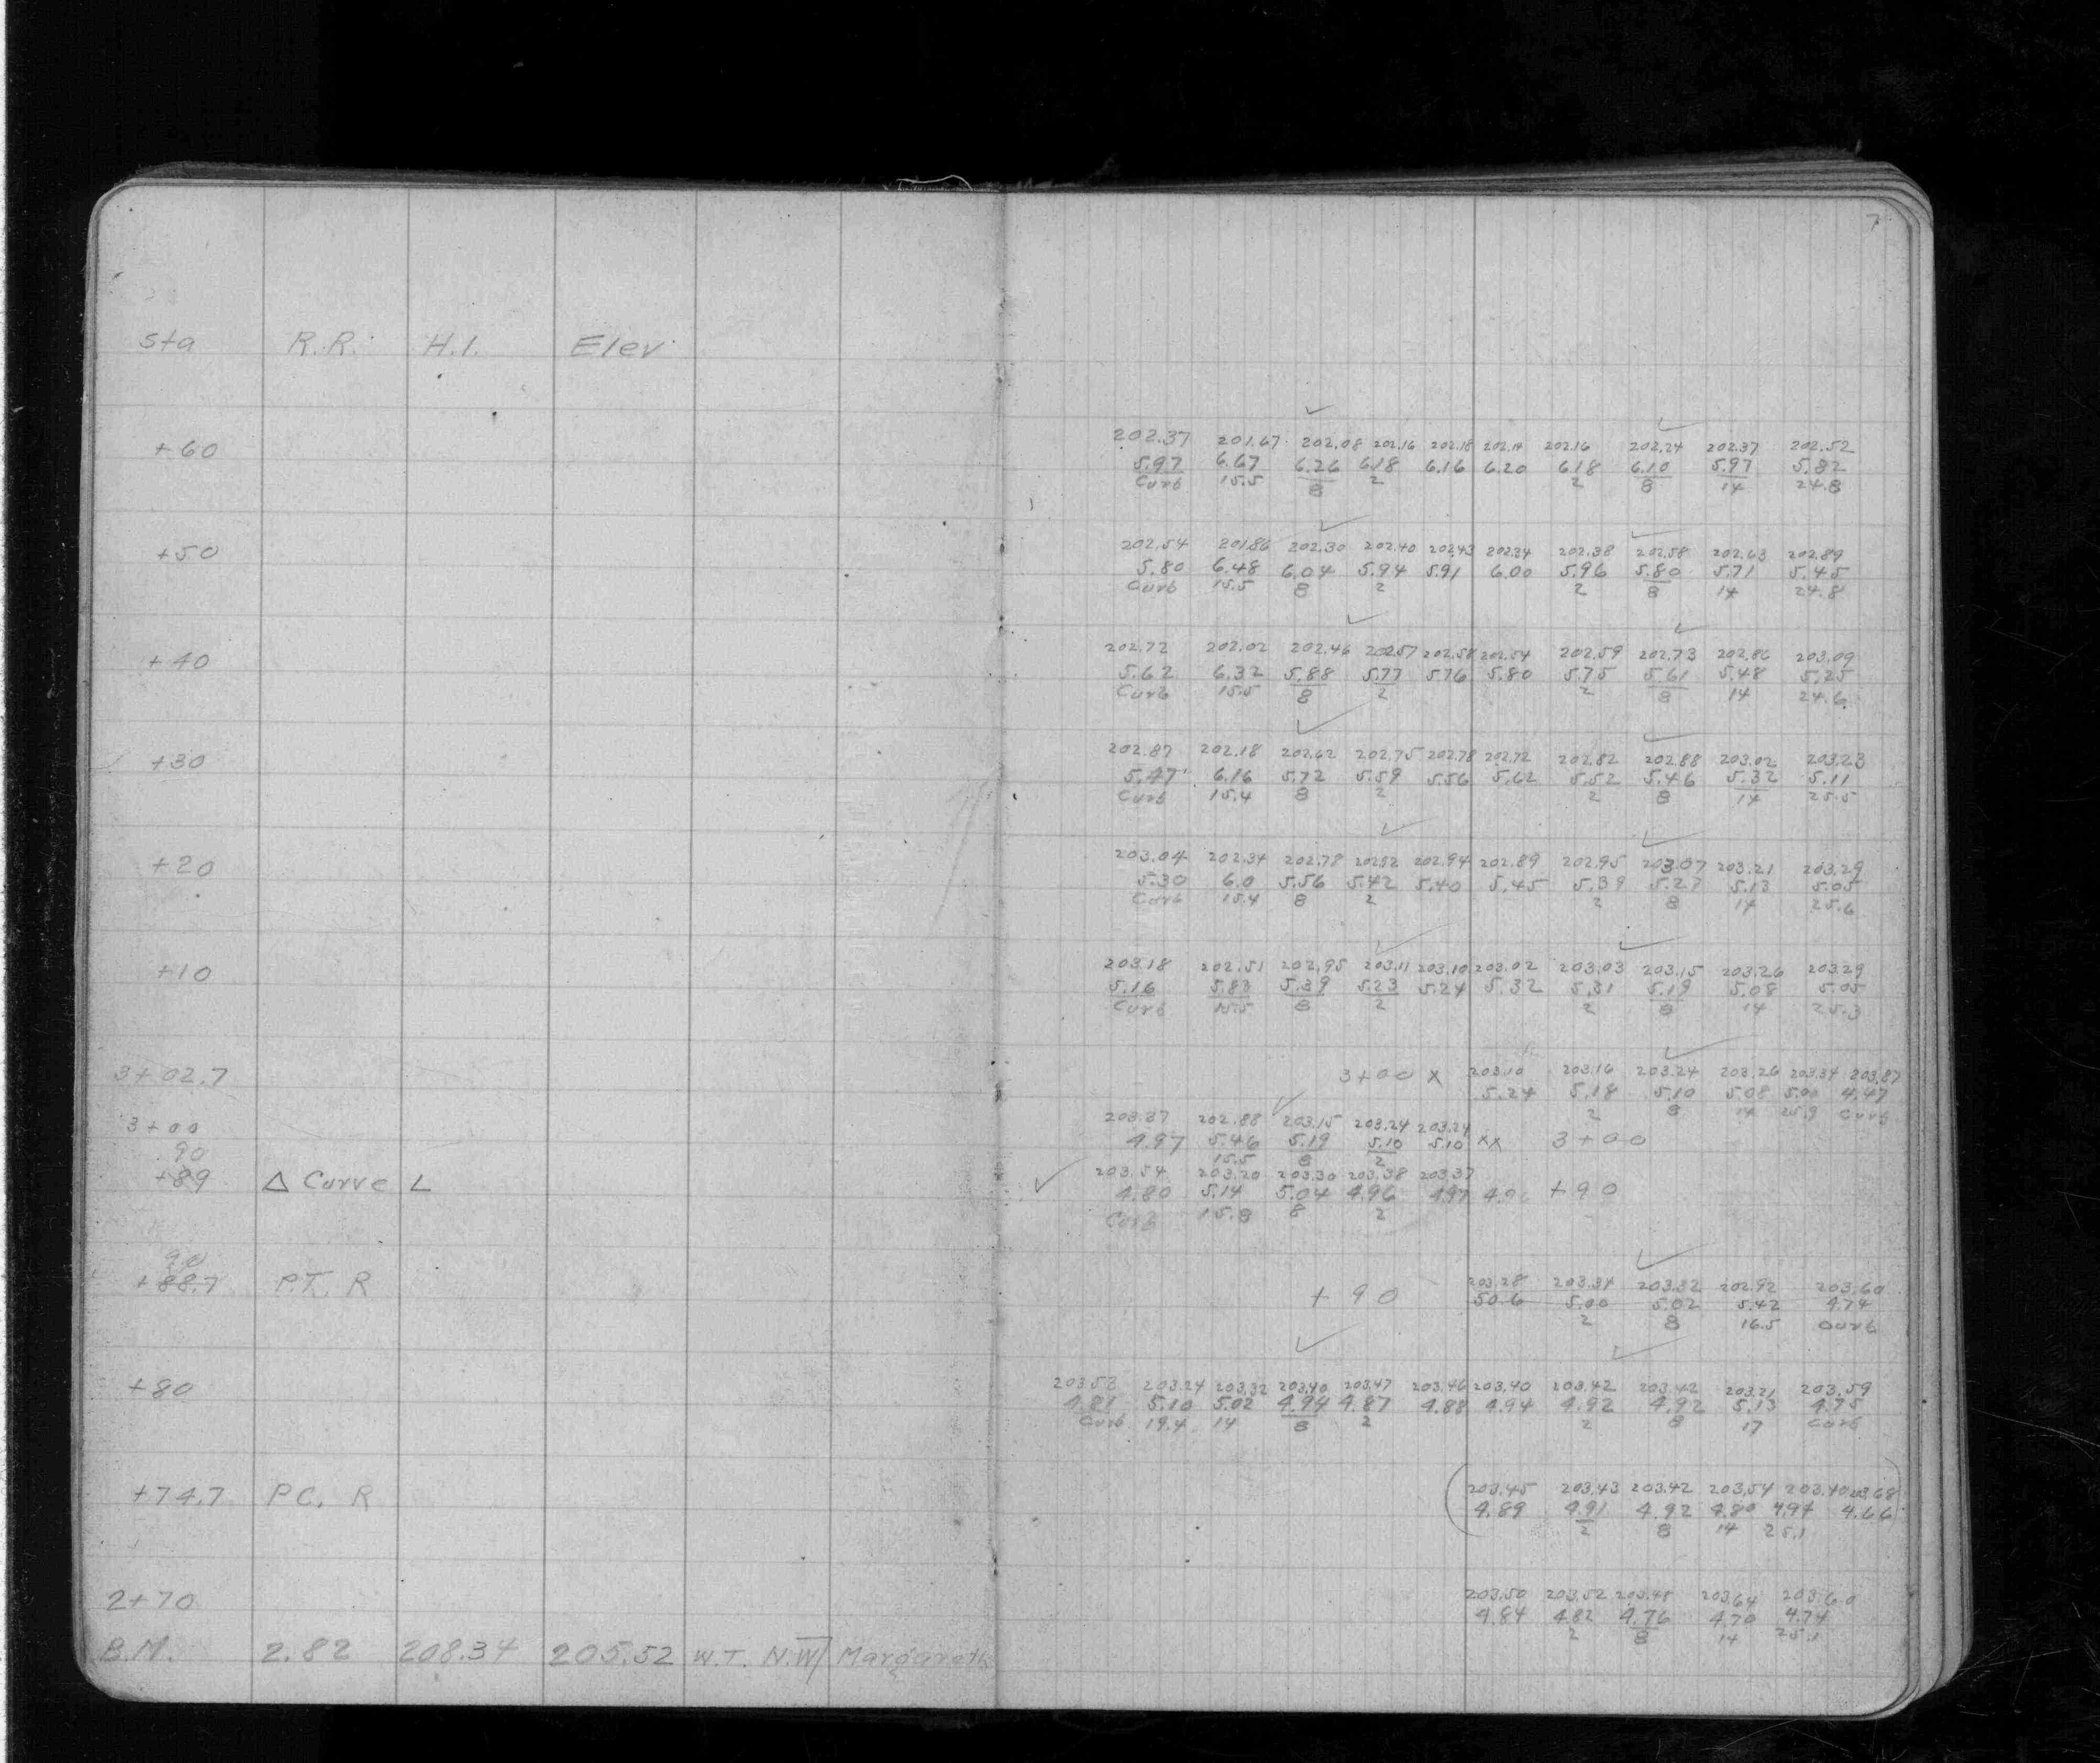 7
Sta R.R. H.I. Elev.
+60 202.37 201.67 202.08 202.16 202.18 202.14 202.16 202.24 202.37 202.52
5.97 6.67 6.26 6.18 6.16 6.20 6.18 6.10 5.97 5.82
Curb 15.5 8 2 2 8 14 24.8
+50 202.54 201.86 202.30 202.40 202.43 202.34 202.38 202.58 202.63 202.89
5.80 6.48 6.04 5.94 5.91 6.00 5.96 5.80 5.71 5.45
Curb 15.5 8 2 2 8 14 24.8
+40 202.72 202.02 202.46 202.57 202.58 202.54 202.59 202.73 202.86 203.09
5.62 6.32 5.88 5.77 5.76 5.80 5.75 5.61 5.48 5.25
Curb 15.5 8 2 2 8 14 24.6
+30 202.87 202.18 202.62 202.75 202.78 202.72 202.82 202.88 203.02 203.23
5.47 6.16 5.72 5.59 5.56 5.62 5.52 5.46 5.32 5.11
Curb 15.4 8 2 2 8 14 25.5
+20 203.04 202.34 202.78 202.94 202.89 202.95 203.07 203.21 203.29
5.30 6.0 5.56 5.42 5.40 5.45 5.39 5.27 5.13 5.05
Curb 15.4 8 2 2 8 14 25.6
+10 203.18 202.51 202.95 203.11 203.10 203.02 203.03 203.15 203.26 203.29
5.16 5.83 5.39 5.23 5.24 5.32 5.31 5.19 5.08 5.05
Curb 15.5 8 2 2 8 14 25.3
3+02.7 3+00 x 203.10 203.16 203.24 203.26 203.34 203.87
5.24 5.18 5.10 5.08 5.00 4.47
2 8 14 25.9 Curb
3+00 203.37 202.88 203.15 203.24 203.24
4.97 5.46 5.19 5.10 5.10 xx 3+00
15.5 8 2
90
+89 Δ Curve L 203.54 203.20 203.30 203.38 203.37
4.80 5.14 5.04 4.96 4.97 +90
Curb 15.8 8 2
90
+88.7 P.T. R +90 203.28 203.34 203.32 202.92 203.60
50.6 5.00 5.02 5.42 4.74
2 8 16.5 Curb
+80 203.53 203.24 203.32 203.40 203.47 203.46 203.40 203.42 203.42 203.21 203.59
4.81 5.10 5.02 4.94 4.87 4.88 4.94 4.92 4.92 5.13 4.75
Curb 19.4 14 8 2 2 8 17 Curb
+74.7 P.C. R (203.45 203.43 203.42 203.54 203.40 203.68)
4.89 4.91 4.92 4.80 4.94 4.66
2 8 14 25.1
2+70 203.50 203.52 203.48 203.64 203.60
4.84 4.82 4.76 4.70 4.74
2 8 14 25.1
B.M. 2.82 208.34 205.52 W.T. N.W Margareth